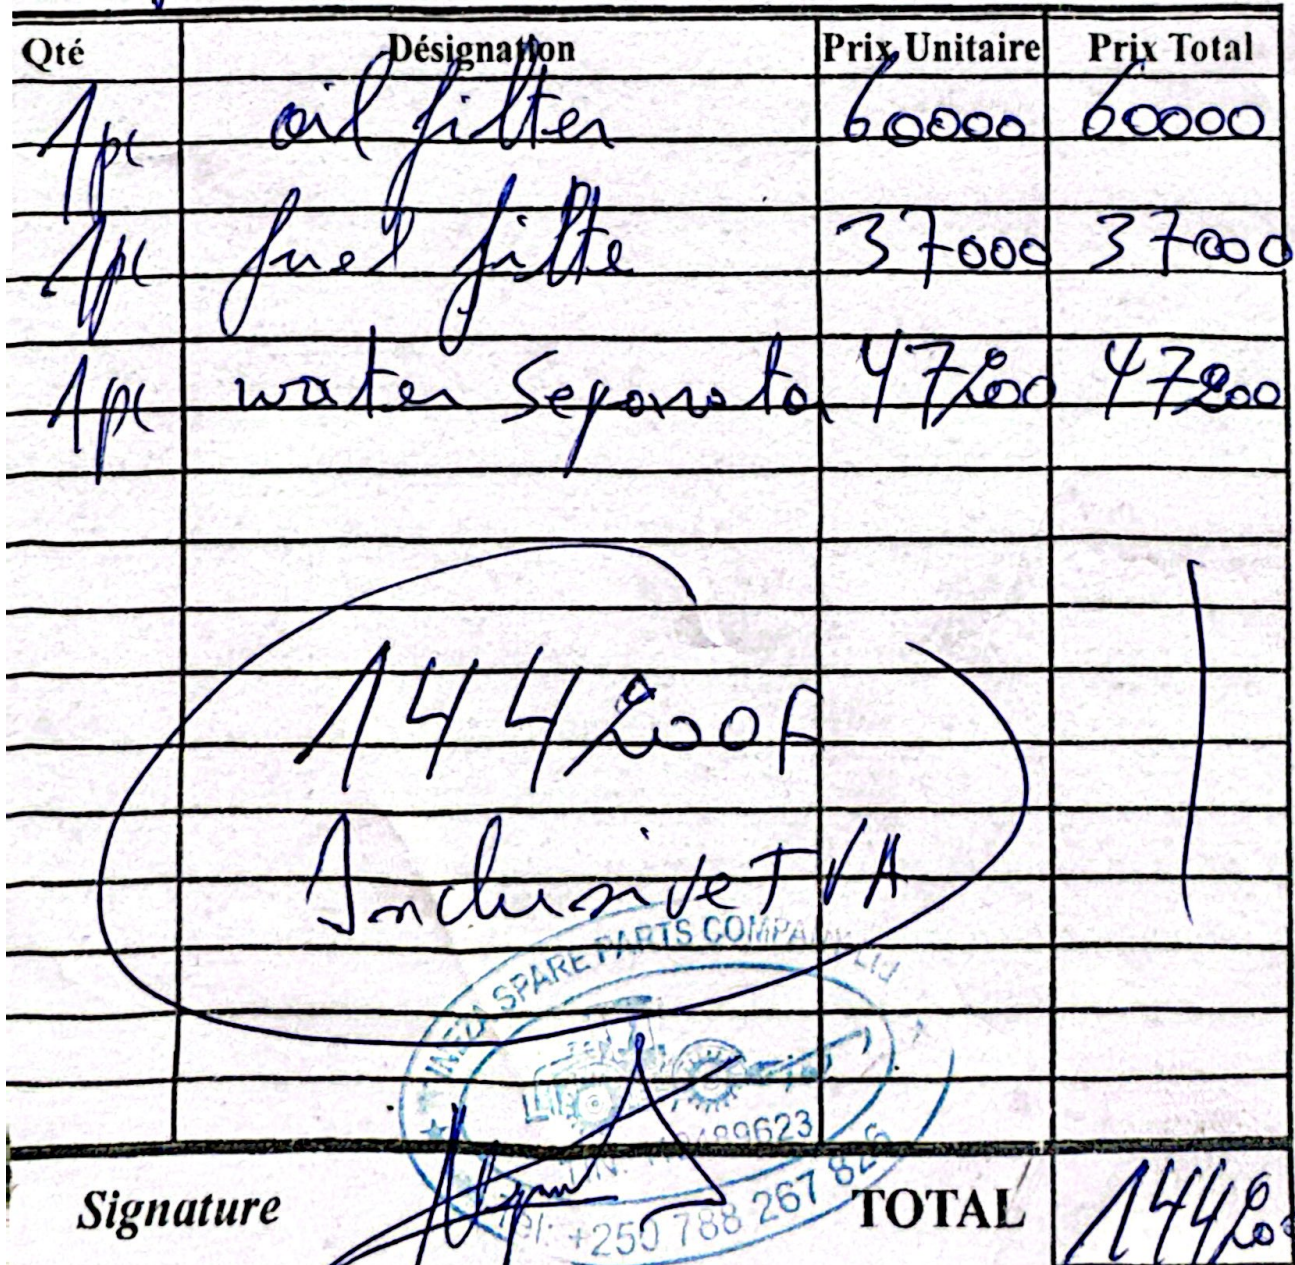 Qté Désignation Prix Unitaire Prix Total
1pc oil filter 60000 60000
1pc fuel filte 37000 37000
1pc water Separator 47200 47200
144200F
Inclusive TVA
SPARE PARTS COMPANY LTD
Signature TOTAL 144200
Tel: +250 788 267 826